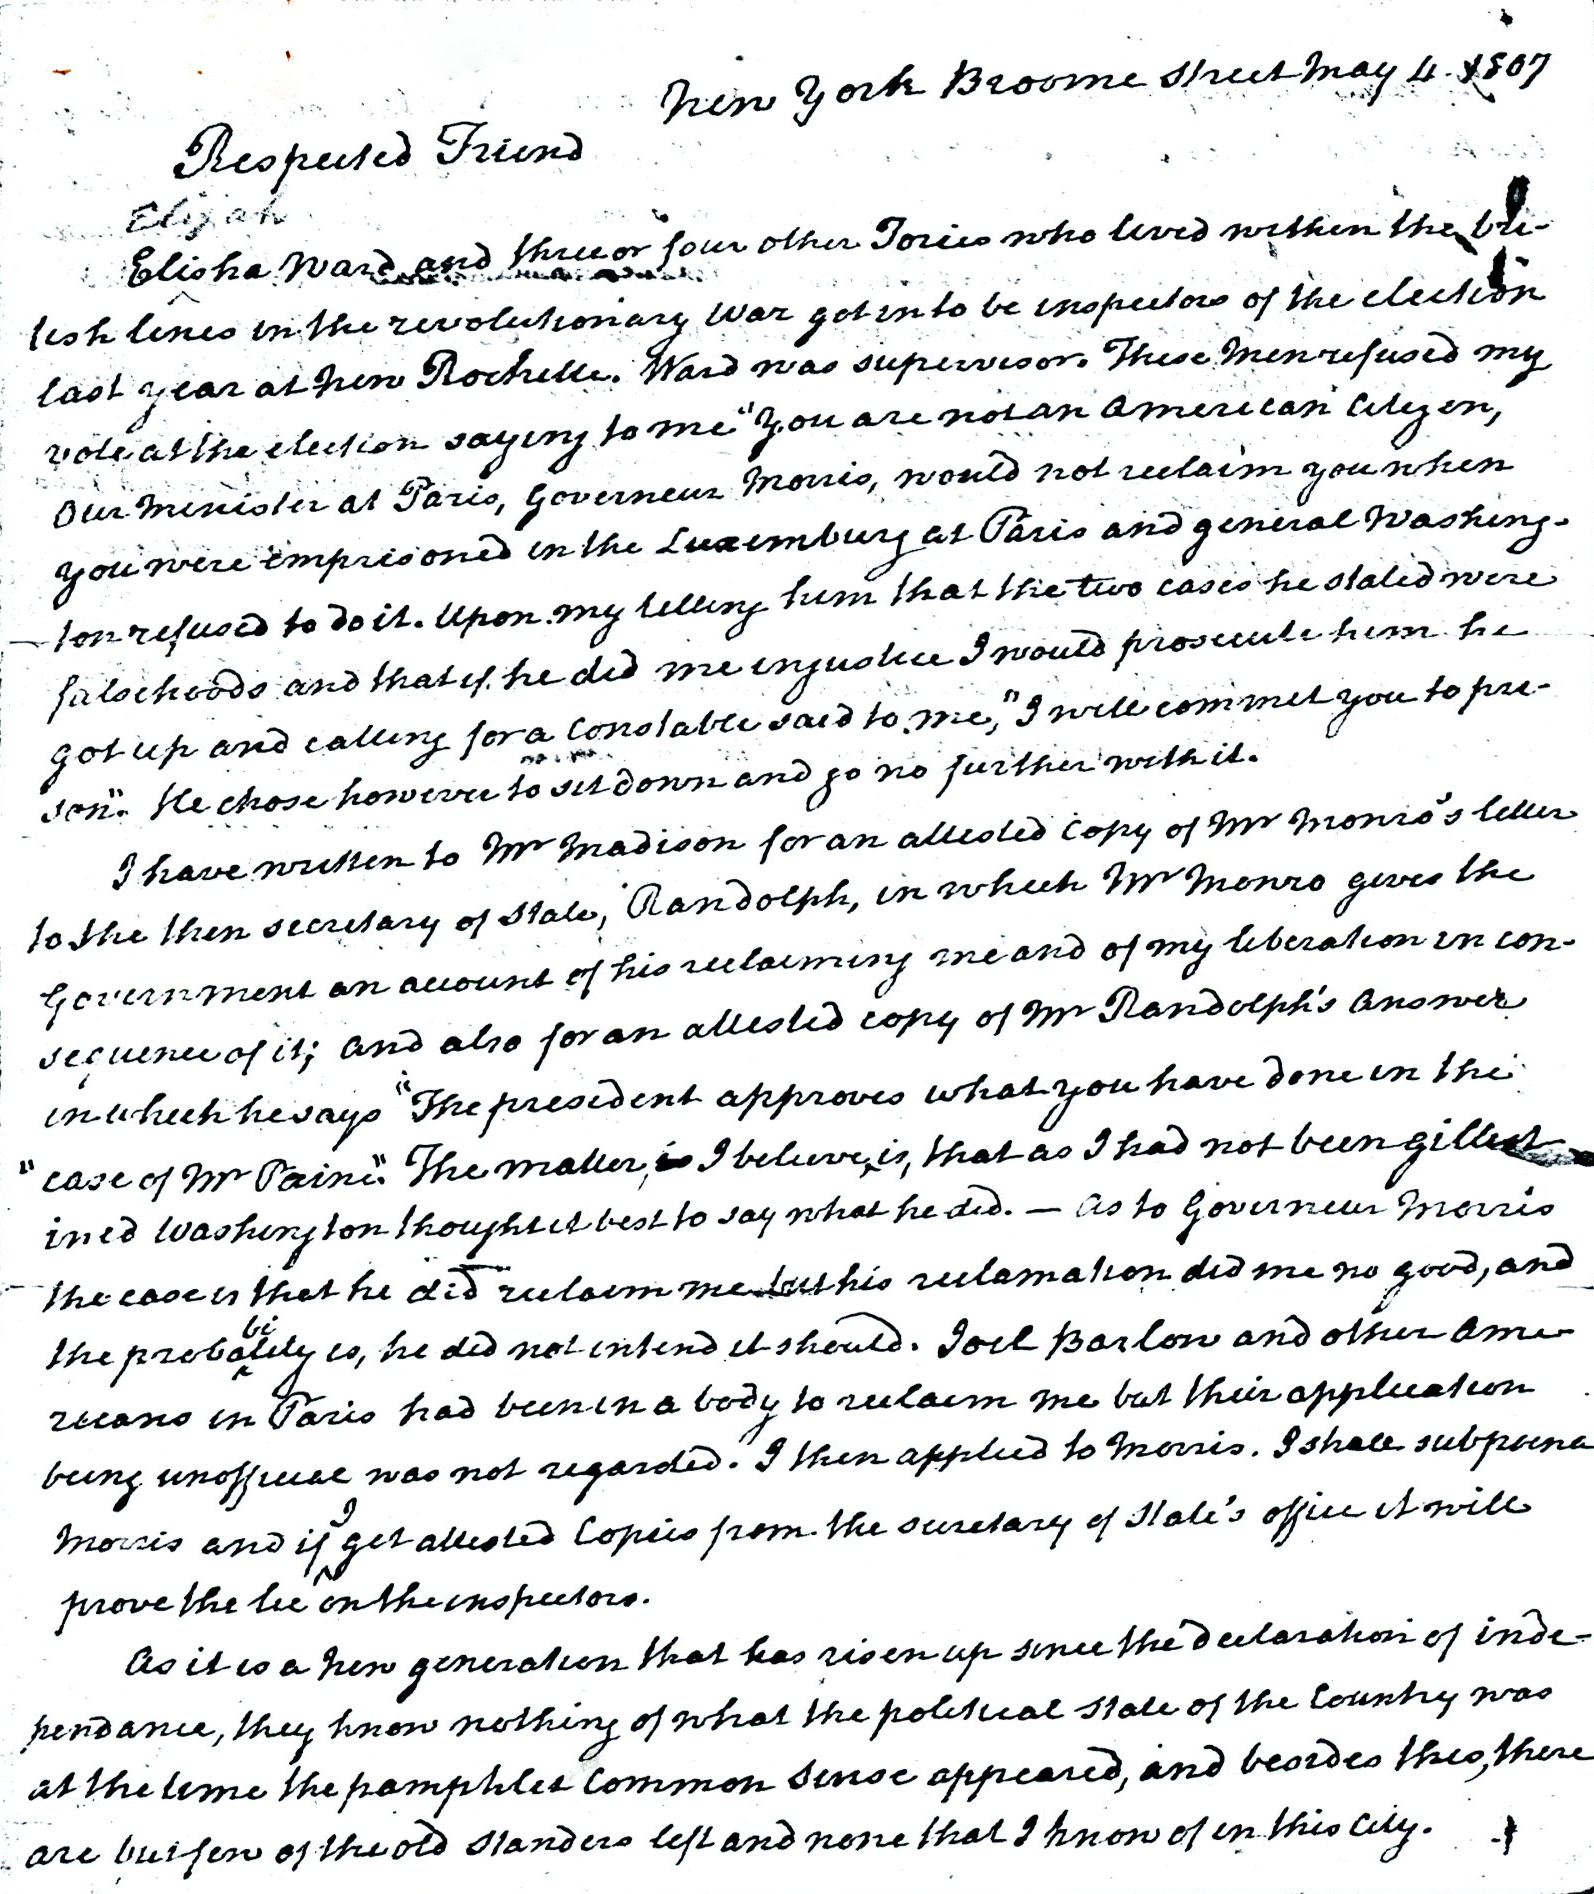 New York Broome Street May 4. 1807
Respected Friend
Elijah
Elisha Ward and three or four other Tories who lived within the bri-
tish lines in the revolutionary War got in to be inspectors of the election
last year at New Rochelle. Ward was supervisor. These men refused my
vote at the election saying to me "You are not an American Citizen,
Our Minister at Paris, Governeur Morris, would not reclaim you when
you were imprisoned in the Luxemburg at Paris and general Washing-
ton refused to do it. Upon my telling him that the two cases he stated were
falsehoods and that if he did me injustice I would prosecute him he
got up and calling for a Constable said to me," I will commit you to pri-
son". He chose however to sit down and go no further with it.
I have written to Mr Madison for an attested Copy of Mr Monro's letter
to the then secretary of State, Randolph, in which Mr Monro gives the
Government an account of his reclaiming me and of my liberation in con-
sequence of it; and also for an attested copy of Mr Randolph's Answer
in which he says "The president approves what you have done in the
"case of Mr Paine". The matter, is I believe, is, that as I had not been gillot
ined Washington thought it best to say what he did. — As to Governeur Morris
the case is that he did reclaim me but his reclamation did me no good, and
the probabilily is, he did not intend it should. Joel Barlow and other Ame-
ricans in Paris had been in a body to reclaim me but their application
being unofficial was not regarded. I then applied to Morris. I shall subpoena
Morris and if I get attested Copies from the secretary of State's office it will
prove the lie on the inspectors.
As it is a New generation that has risen up since the declaration of inde-
pendance, they know nothing of what the political state of the Country was
at the time the pamphlet Common Sense appeared, and besides this, there
are but few of the old Standers left and none that I know of in this City.